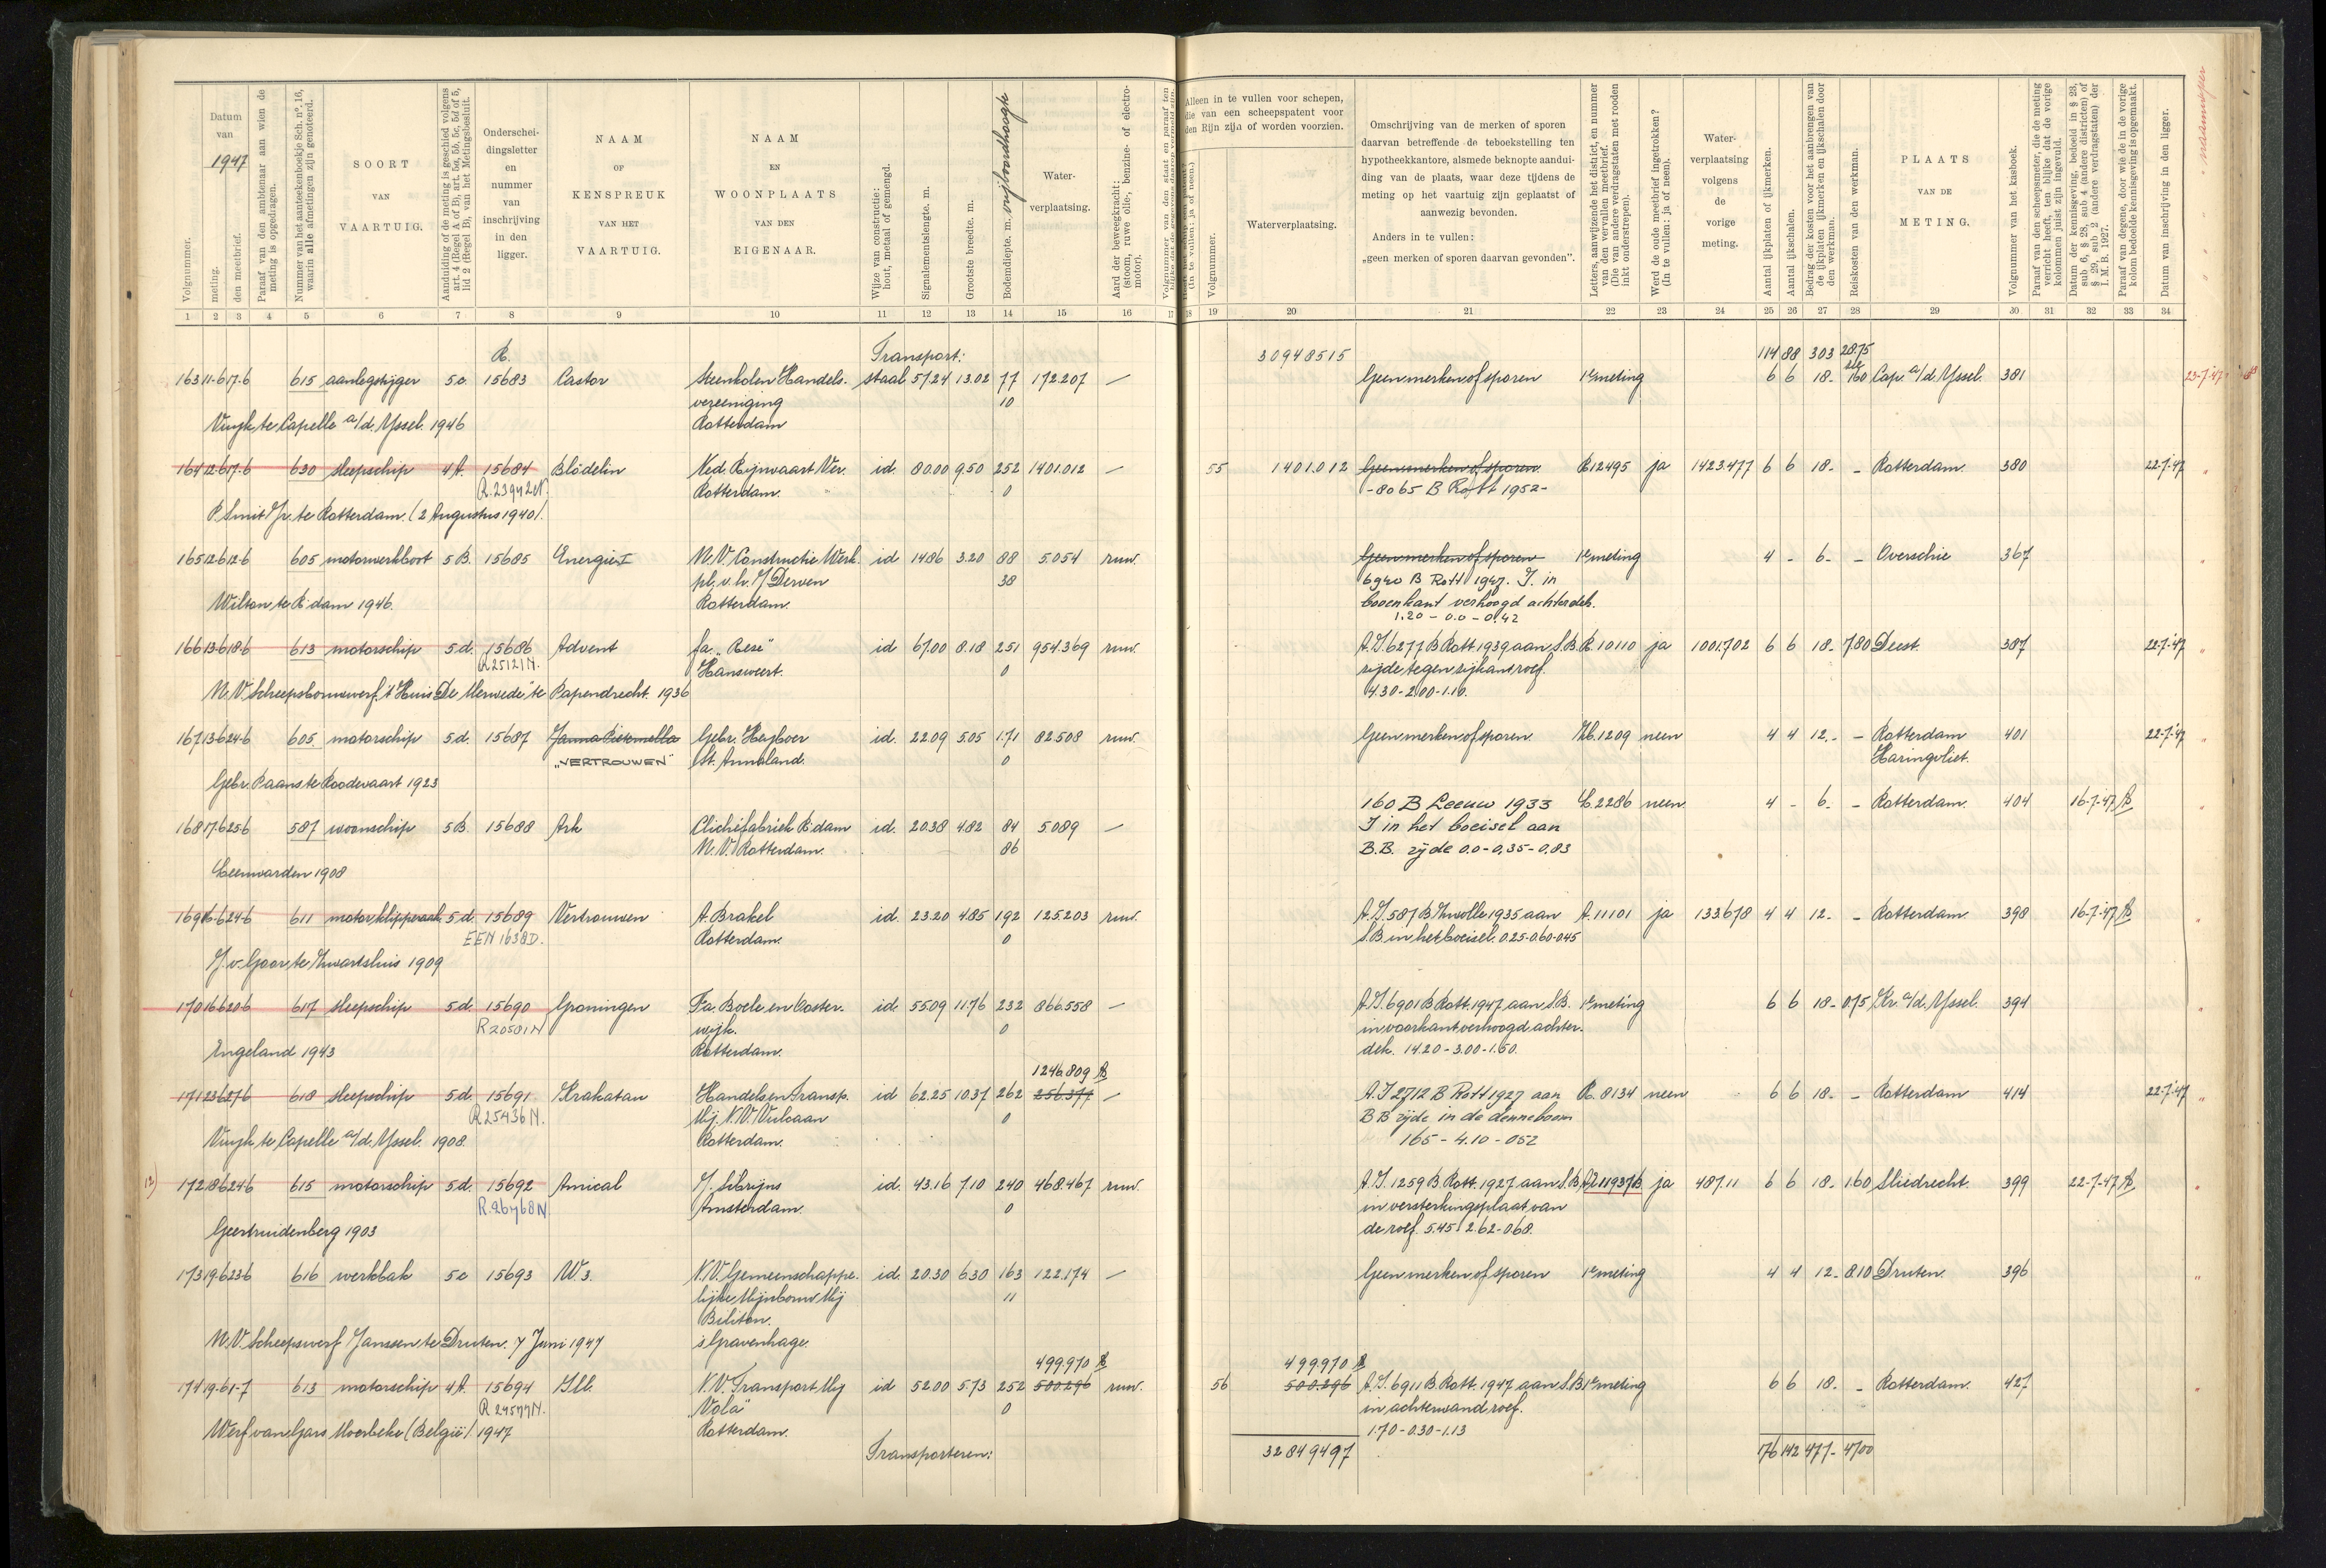 Datum van
1947
meting.
den meetbrief.
Volgnummer.
Paraaf van den ambtenaar aan wien de meting is opgedragen.
Nummer van het aanteekenboekje Sch. nº. 16, waarin alle afmetingen zijn genoteerd.
SOORT VAN VAARTUIG.
Aanduiding of de meting is geschied volgens art. 4 (Regel A of B), art. 5a, 5b, 5c, 5d of 5, lid 2 (Regel B), van het Metingsbesluit.
Onderscheidingsletter en nummer van inschrijving in den ligger.
NAAM OF KENSPREUK VAN HET VAARTUIG.
NAAM EN WOONPLAATS VAN DEN EIGENAAR.
Wijze van constructie: hout, metaal of gemengd.
Signalementslengte. m.
Grootste breedte. m.
Bodemdiepte. m. vrijboordhoogte
Waterverplaatsing.
Aard der beweegkracht: (stoom, ruwe olie-, benzine- of electromotor).
Alleen in te vullen voor schepen, die van een scheepspatent voor den Rijn zijn of worden voorzien.
(In te vullen: ja of neen.)
Volgnummer.
Waterverplaatsing.
Omschrijving van de merken of sporen daarvan betreffende de teboekstelling ten hypotheekkantore, alsmede beknopte aanduiding van de plaats, waar deze tijdens de meting op het vaartuig zijn geplaatst of aanwezig bevonden.
Anders in te vullen:
„geen merken of sporen daarvan gevonden”.
Letters, aanwijzende het district, en nummer van den vervallen meetbrief. (Die van andere verdragstaten met rooden inkt onderstrepen).
Werd de oude meetbrief ingetrokken? (In te vullen: ja of neen).
Waterverplaatsing volgens de vorige meting.
Aantal ijkplaten of ijkmerken.
Aantal ijkschalen.
Bedrag der kosten voor het aanbrengen van de ijkplaten ijkmerken en ijkschalen door den werkman.
Reiskosten van den werkman.
PLAATS VAN DE METING.
Volgnummer van het kasboek.
Paraaf van den scheepsmeter, die de meting verricht heeft, ten blijke dat de vorige kolommen juist zijn ingevuld.
Datum der kennisgeving, bedoeld in § 23, sub 6, § 28, sub 4 (andere districten) of § 29, sub 2 (andere verdragstaten) der I. M. B. 1927.
Paraaf van degene, door wie de in de vorige kolom bedoelde kennisgeving is opgemaakt.
Datum van inschrijving in den ligger.
1 2 3 4 5 6 7 8 9 10 11 12 13 14 15 16 17 18 19 20 21 22 23 24 25 26 27 28 29 30 31 32 33 34
R. Transport: 30948515 114 88 303 28.75
163 11-6 17-6 615 aanlegsteiger 5.c 15683 Castor Steenkolen Handels- staal 57.24 13.02 77 172.207 — Geen merken of sporen 1e meting 6 6 18.- 1.60 Cap. a/d. Yssel. 381 23-7-'47
vereeniging 10
Vuyk te Capelle a/d. Yssel. 1946 Rotterdam
164 12-6 17-6 630 sleepschip 4A. 15684 Blödelin Ned. Rijnvaart Ver. id. 80.00 9.50 252 1401.012 — 55 1.401.012 Geen merken of sporen R 12495 ja 1423.477 6 6 18.- - Rotterdam. 380 22-7-'47
R.23942N. Rotterdam. 0 -8065 B Rott 1952-
P. Smit Jr. te Rotterdam. (2 Augustus 1940).
165 12-6 12-6 605 motorwerkboot 5B. 15685 Energie I N.V. Constructie Werk- id 14.86 3.20 88 5.054 ruw. Geen merken of sporen 1e meting 4 - 6.- - Overschie 367
pl. v.h. J. Derven 38 6940 B Rott 1947. J. in
Wilton te R'dam 1946. Rotterdam. bovenkant verhoogd achterdek.
1.20 - 0.0 - 0.42
166 13-6 18-6 613 motorschip 5.d. 15686 Advent fa. „Rese" id 67.00 8.18 251 954.369 ruw. A.J. 6277 B Rott. 1939 aan S.B. R. 10110 ja 1001.702 6 6 18.- 7.80 Deest. 387 22-7-'47
R25121N. Hansweert. 0 zijde tegen zijkant roef.
N.V. Scheepsbouwwerf „'t Huis De Merwede" te Papendrecht. 1936 4.30-2.00-1.10.
167 13-6 24-6 605 motorschip 5.d. 15687 Gebr. Heyboer id. 22.09 5.05 1.71 82.508 ruw. Geen merken of sporen. Zb. 1209 neen 4 4 12.- - Rotterdam 401 22-7-'47
„VERTROUWEN" St. Annaland. 0 Haringvliet.
Gebr. Paans te Roodevaart 1923
168 17-6 25-6 587 woonschip 5B. 15688 Ark Clichéfabriek R'dam id. 20.38 4.82 84 5.089 — 160 B Leeuw 1933 L. 2286 neen 4 - 6.- - Rotterdam. 404 16-7-'47
N.V. Rotterdam. 86 J in het boeisel aan
B.B. zijde 0.0-0,35-0,83
Leeuwarden 1908
169 16-6 24-6 611 motorklipperaak 5.d. 15689 Vertrouwen A. Brakel id. 23.20 4.85 192 125.203 ruw. A.J. 587 B. Zwolle 1935 aan A. 11101 ja 133.678 4 4 12.- - Rotterdam. 398 16-7-'47
EEN 1638D. Rotterdam. 0 S.B in het boeisel. 0.25-0.60-0.45
J. v. Goor te Zwartsluis 1909
170 16-6 20-6 617 sleepschip 5.d. 15690 Groningen Fa. Boele en Ooster- id. 55.09 11.76 232 866.558 — A.J. 6901 B Rott. 1947 aan S.B. 1e meting 6 6 18.- 0.75 Kr. a/d. Yssel. 394
R20501N wijk. 0 in voorkant verhoogd achter-
Engeland 1943 Rotterdam. dek. 14.20-3.00-1.50.
1246.809
171 23-6 27-6 618 sleepschip 5.d. 15691 Krakatau Handels en Transp. id 62.25 10.37 262 256.377 — A.J 2712 B Rott 1927 aan R. 8134 neen 6 6 18.- - Rotterdam 414 22-7-'47
R25436N. Mij. N.V. Vulcaan 0 BB zijde in de denneboom
Vuyk te Capelle a/d. Yssel. 1908. Rotterdam. 165 - 4.10 - 052
172 18-6 24-6 615 motorschip 5.d. 15692 Amical J. Sebrijns id. 43.16 7.10 240 468.467 ruw. A.J. 1259 B Rott. 1927 aan S.B. ja 487.11 6 6 18.- 1.60 Sliedrecht. 399 22-7-47
R.26768N. Amsterdam. 0 in versterkingsplaat van
Geertruidenberg 1903 de roef. 5.45-2.62-0.68.
173 19-6 23-6 616 werkbak 5c 15693 W.3. N.V. Gemeenschappe- id. 20.30 6.30 163 122.174 — Geen merken of sporen 1e meting 4 4 12.- 8.10 Druten. 396
lijke Mijnbouw Mij 11
Biliton.
N.V. Scheepswerf Janssen te Druten. 7 Juni 1947 's Gravenhage.
499.970 499.970
174 19-6 1-7 613 motorschip 4A. 15694 Ill. N.V. Transport Mij id 52.00 5.73 252 500.296 ruw. 56 500.296 A.J. 6911 B. Rott. 1947 aan S.B. 1e meting 6 6 18.- - Rotterdam. 427
R 24577N. „Vola" 0 in achterwand roef.
Werf van Gars Moerbeke (België) 1947 Rotterdam. 1.70-0.30-1.13
Transporteren: 32849497 176 142 477.- 47.00